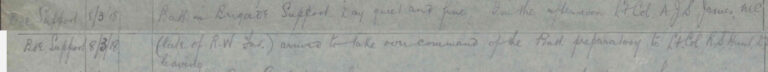 Bde Support 8/3/18 Batt in Brigade Support. Day quiet and fine. In the afternoon Lt Col A.J.S. James, MC
Bde Support 8/3/18 (late of R.W. Fus.) arrives to take over command of the Batt preparatory to Lt Col R.S. Hunt
leaving